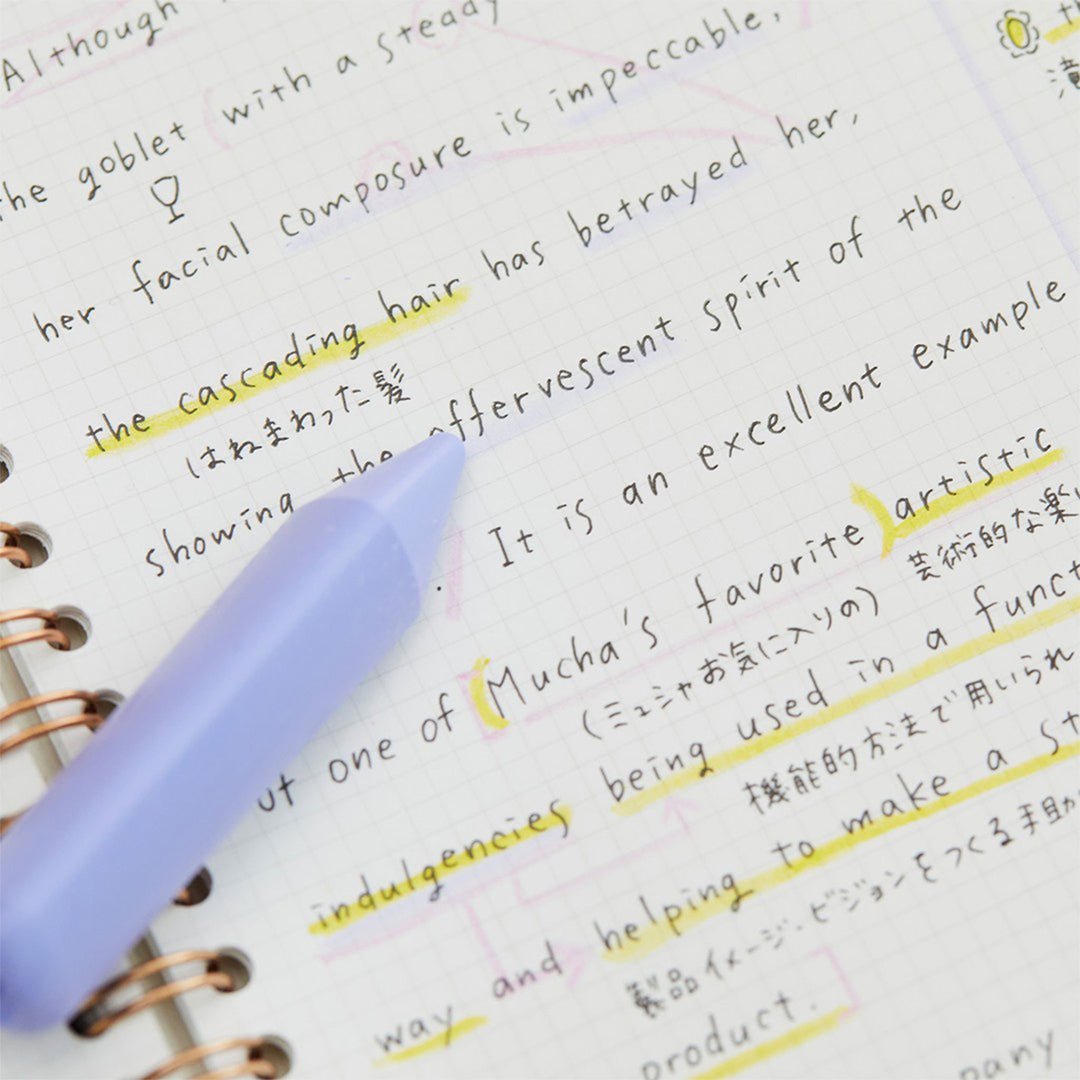 Although
the goblet with a steady
her facial composure is impeccable,
the cascading hair has betrayed her,
はねまわった髪
showing the effervescent spirit of the
. It is an excellent example
one of (Mucha's favorite) artistic
(ミュシャお気に入りの) 芸術的な楽
indulgencies being used in a funct
機能的方法で用いられ
way and helping to make a st
製品イメージ・ビジョンをつくる手助
product.
pany